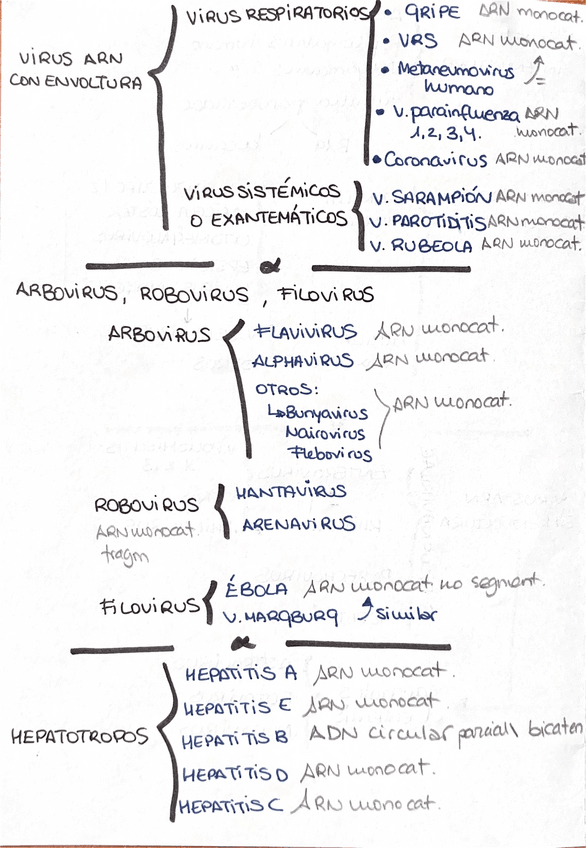 VIRUS ARN
CON ENVOLTURA
VIRUS RESPIRATORIOS
• GRIPE ARN monocat.
• VRS ARN monocat.
• Metaneumovirus
humano =
• V. parainfluenza ARN
1,2,3,4. monocat.
• Coronavirus ARN monocat
VIRUS SISTÉMICOS
O EXANTEMÁTICOS
V. SARAMPIÓN ARN monocat
V. PAROTIDITIS ARN monocat
V. RUBEOLA ARN monocat.
ARBOVIRUS, ROBOVIRUS, FILOVIRUS
ARBOVIRUS
FLAVIVIRUS ARN monocat.
ALPHAVIRUS ARN monocat.
OTROS:
↳Bunyavirus
Nairovirus
Flebovirus
ARN monocat.
ROBOVIRUS
ARN monocat.
fragm
HANTAVIRUS
ARENAVIRUS
FILOVIRUS
ÉBOLA ARN monocat no segment.
V. MARQBURG similar
HEPATOTROPOS
HEPATITIS A ARN monocat.
HEPATITIS E ARN monocat.
HEPATITIS B ADN circular parcial\ bicaten
HEPATITIS D ARN monocat.
HEPATITIS C ARN monocat.